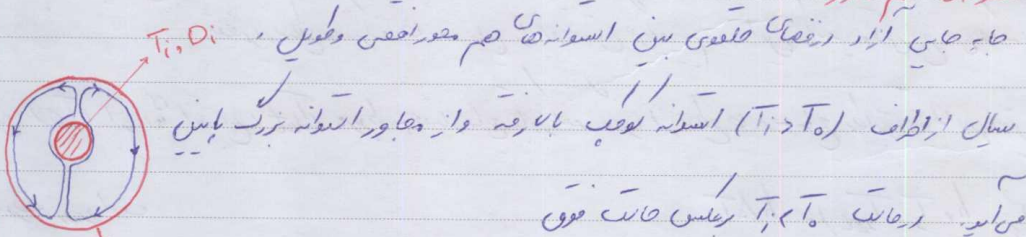 جابه جایی آزاد در فضای حلقوی بین استوانه های هم محور افقی و طویل .
Ti, Di
سیال از اطراف (Ti > To) استوانه کوچک بالا رفته و از مجاور استوانه بزرگ پایین
می آید. در حالت برعکس حالت فوق